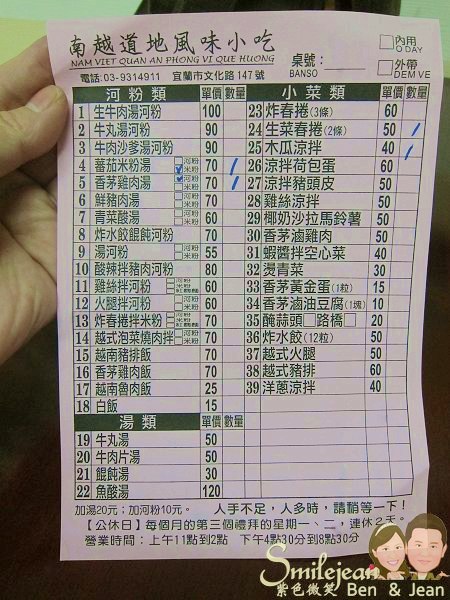 南越道地風味小吃
NAM VIET QUAN AN PHONG VI QUE HUONG
電話:03-9314911 宜蘭市文化路147號
桌號:
BANSO
□內用
O DAY
□外帶
DEM VE
河粉類 單價 數量
1 生牛肉湯河粉 100
2 牛丸湯河粉 90
3 牛肉沙爹湯河粉 90
4 蕃茄米粉湯 □河粉 ☑米粉 70 /
5 香茅雞肉湯 ☑河粉 □米粉 70 /
6 鮮豬肉湯 □河粉 □米粉 70
7 青菜酸湯 □河粉 □米粉 60
8 炸水餃餛飩河粉 70
9 湯河粉 □河粉 □米粉 55
10 酸辣拌豬肉河粉 80
11 雞絲拌河粉 □河粉 □米粉 60
12 火腿拌河粉 □河粉 □米粉 60
13 炸春捲拌米粉 □河粉 □米粉 70
14 越式泡菜燒肉拌 □河粉 □米粉 70
15 越南豬排飯 70
16 香茅雞肉飯 70
17 越南魯肉飯 25
18 白飯 15
湯類 單價 數量
19 牛丸湯 50
20 牛肉片湯 50
21 餛飩湯 30
22 魚酸湯 120
小菜類 單價 數量
23 炸春捲(3條) 60
24 生菜春捲(2條) 50 /
25 木瓜涼拌 40 /
26 涼拌荷包蛋 60
27 涼拌豬頭皮 50
28 雞絲涼拌 50
29 椰奶沙拉馬鈴薯 50
30 香茅滷雞肉 50
31 蝦醬拌空心菜 40
32 燙青菜 30
33 香茅黃金蛋(1粒) 15
34 香茅滷油豆腐(1塊) 10
35 醃蒜頭□路橋□ 20
36 炸水餃(12粒) 50
37 越式火腿 50
38 越式豬排 60
39 洋蔥涼拌 40
加湯20元;加河粉10元。 人手不足,人多時,請稍等一下!
【公休日】每個月的第三個禮拜的星期一、二,連休2天。
營業時間:上午11點到2點 下午4點30分到8點30分
Smilejean
紫色微笑 Ben & Jean